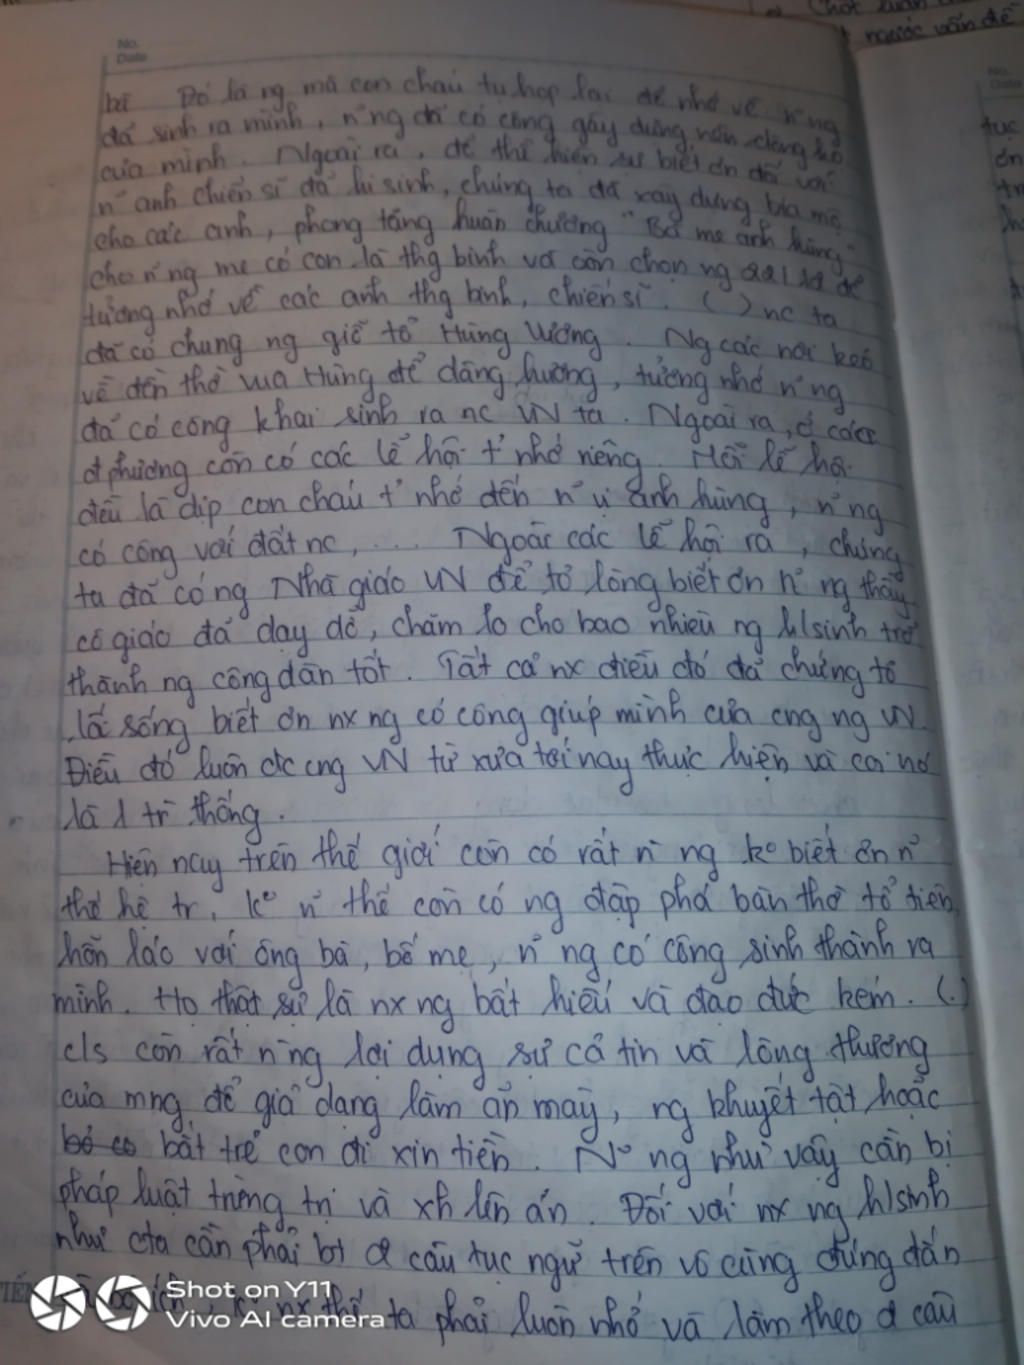 No.
Date
Đó là ng mà con cháu tụ họp lại để nhớ về n~ ng
đã sinh ra mình, n~ ng đã có công gây dựng nên dòng họ
của mình. Ngoài ra, để thể hiện sự biết ơn đối với
n~ anh chiến sĩ đã hi sinh, chúng ta đã xây dựng bia mộ
cho các anh, phong tặng huân chương "Bà mẹ anh hùng"
cho n~ ng mẹ có con là thg binh và còn chọn ng để
tưởng nhớ về các anh thg binh, chiến sĩ. ( ) nc ta
đã có chung ng giỗ tổ Hùng Vương. Ng các nơi kéo
về đền thờ vua Hùng để dâng hương, tưởng nhớ n~ ng
đã có công khai sinh ra nc VN ta. Ngoài ra, ở các
đ phương còn có các lễ hội t' nhớ riêng. Mỗi lễ hội
đều là dịp con cháu t' nhớ đến n~ vị anh hùng, n~ ng
có công với đất nc, .... Ngoài các lễ hội ra, chúng
ta đã có ng Nhà giáo VN để tỏ lòng biết ơn n~ ng thầy
cô giáo đã dạy dỗ, chăm lo cho bao nhiêu ng h/sinh trở
thành ng công dân tốt. Tất cả nx điều đó đã chứng tỏ
lối sống biết ơn nx ng có công giúp mình của cng ng VN.
Điều đó luôn đc cng VN từ xưa tới nay thực hiện và coi nó
là 1 tr thống.
Hiện nay trên thế giới còn có rất n` ng ko biết ơn n~
thế hệ tr, ko n~ thế còn có ng đập phá bàn thờ tổ tiên,
hỗn láo với ông bà, bố mẹ, n~ ng có công sinh thành ra
mình. Họ thật sự là nx ng bất hiếu và đạo đức kém. (.)
c/s còn rất n` ng lợi dụng sự cả tin và lòng thương
của mng để giả dạng làm ăn mày, ng khuyết tật hoặc
bắt trẻ con đi xin tiền. N~ ng như vậy cần bị
pháp luật trừng trị và xh lên án. Đối với nx ng h/sinh
như cta cần phải bt đ câu tục ngữ trên vô cùng đúng đắn
nx thế ta phải luôn nhớ và làm theo đ câu
Shot on Y11
Vivo AI camera
ngước vấn đề
No.
Date
tục
ơn